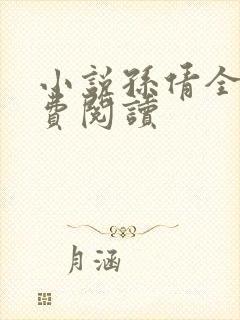 小說孫倩全
費閱讀
月涵